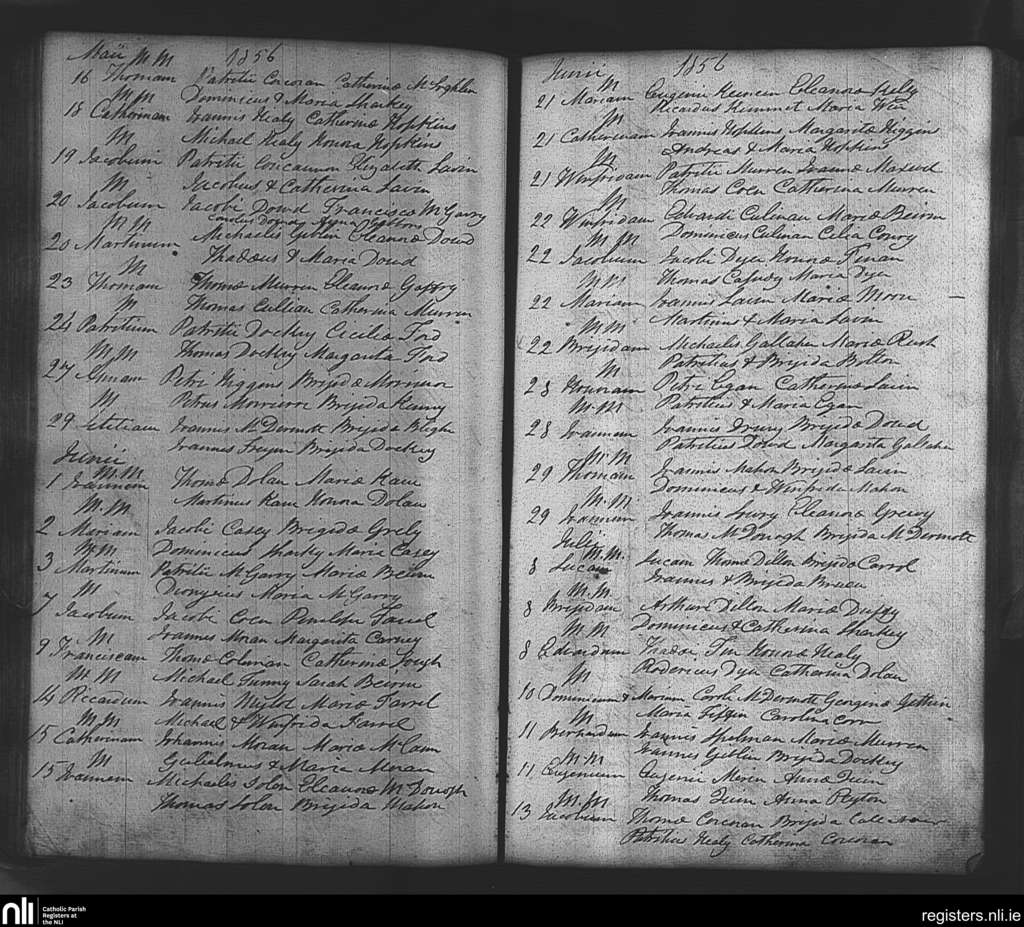 Maii M M 1856
16 Thomam Patritii Corcoran Catherinæ McLoghlin
M M Dominicus & Maria Sharkey
18 Catherinam Joannis Healy Catherinæ Hopkins
M Michael Healy Honora Hopkins
19 Jacobum Patritii Concannon Elizabeth Lavin
M Jacobus & Catherina Lavin
20 Jacobum Jacobi Dowd Franciscæ McGarry
M M Carolus
20 Martinum Michaelis Giblin Eleanoræ Dowd
Thadæus & Maria Dowd
M
23 Thomam Thomæ Murren Eleanoræ Gaffry
M Thomas Cullian Catherina Murren
24 Patritium Patritii Dockry Ceciliæ Ford
M M Thomas Dockry Margarita Ford
27 Annam Petri Higgens Brigidæ
M Petrus Brigida Kenny
29 Letitiam Joannis McDermott Brigida
Joannes Brigida Dockry
Junii
M M
1 Joannem Thomæ Dolan Mariæ Kane
M M Martinus Kane Honora Dolan
2 Mariam Jacobi Casey Brigidæ Grely
M M Dominicus Sharky Maria Casey
3 Martinum Patritii McGarry Mariæ Beirne
M Dionysius Maria McGarry
7 Jacobum Jacobi Coen Penelope Farrel
M Joannes Moran Margarita Carney
9 Franciscam Thomæ Coleman Catherinæ
M M Michael Sarah Beirne
14 Ricardum Joannis Mariæ Farrel
M M Michael & Winfrida Farrel
15 Catherinam Johannis Moran Mariæ McCann
M Gulielmus & Maria Moran
15 Joannem Michaelis Solon Eleanoræ McDonogh
Thomas Solon Brigida Mahon
Junii 1856
M
21 Mariam Eugenii Keenein Eleanoræ Hely
M Ricardus Kemmet Maria
21 Catherinam Joannis Hopkins Margaritæ Higgins
M Andreas & Maria Hopkins
21 Winfridam Patritii Murren Joannæ
M Thomas Coen Catherina Murren
22 Winfridam Edwardi Culinan Mariæ Beirne
M M Dominicus Culinan Celia Conry
22 Jacobum Jacobi Dyer Honoræ Finan
M M Thomas Cassidy Maria Dyer
22 Mariam Joannis Lavin Mariæ Moore
M M Martinus & Maria Lavin
22 Brigidam Michaelis Gallaher Mariæ Rush
M Patritius & Brigida Bolton
28 Honoram Petri Egan Catherinæ Lavin
M M Patritius & Maria Egan
28 Joannem Joannis Drury Brigidæ Dowd
Patritius Dowd Margarita Gallaher
M M
29 Thomam Joannis Mahon Brigidæ Lavin
M M Dominicus & Winfrida Mahon
29 Joannem Joannis Lowry Eleanoræ Grevy
Julii Thomas McDonogh Brigida McDermott
M M
8 Lucam Lucam Thomæ Dillon Brigidæ Carrol
M M Joannes & Brigida
8 Brigidam Arthuri Dillon Mariæ Duffy
M M Dominicus & Catherina Sharkey
8 Edvardum Thadæi Honoræ Healy
M Rodericus Dyer Catherina Dolan
10 Dominicum & Mariam Caroli McDermott Georginæ Gethin
M Maria Carolina
11 Bernardum Joannis Spelman Mariæ Murren
M M Joannes Giblin Brigida Dockry
11 Eugenium Eugenii Annæ Quin
M M Thomas Quin Anna Peyton
13 Jacobum Thomæ Corcoran Brigida
Patritius Healy Catherina Corcoran
nli Catholic Parish
Registers at
the NLI
registers.nli.ie